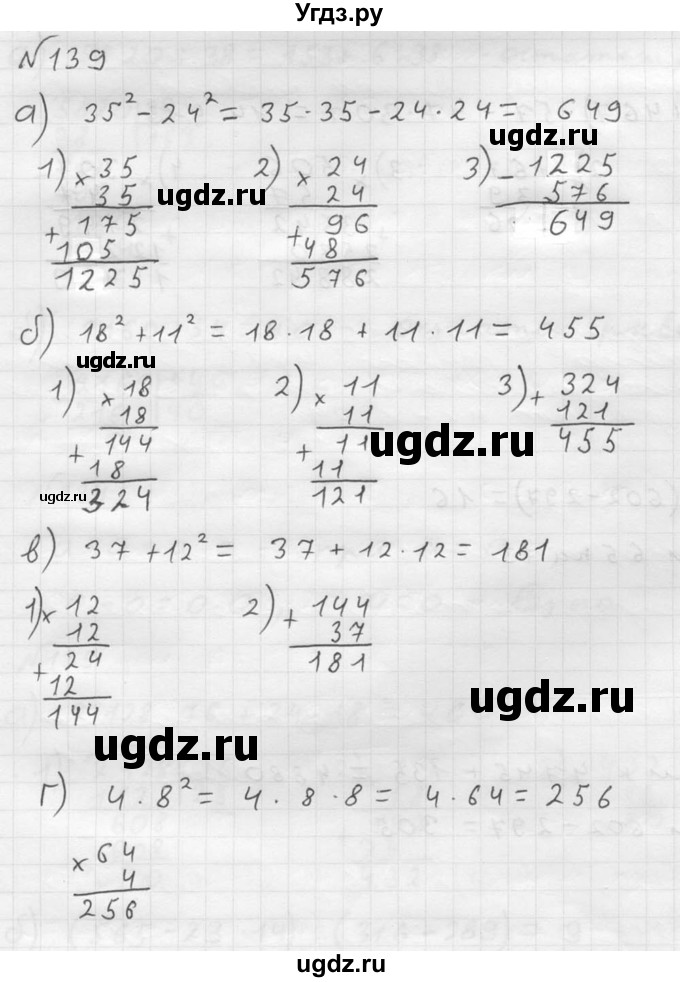 Угдз.ру
№139
а) 35² - 24² = 35·35 - 24·24 = 649
ugdz.ru
1) × 35
35
+ 175
105
1225
2) × 24
24
+ 96
48
576
3) - 1225
576
649
ugdz.ru
ugdz.ru
б) 18² + 11² = 18·18 + 11·11 = 455
ugdz.ru
1) × 18
18
+ 144
18
324
2) × 11
11
+ 11
11
121
3) + 324
121
455
ugdz.ru
ugdz.ru
в) 37 + 12² = 37 + 12·12 = 181
1) × 12
12
+ 24
12
144
2) + 144
37
181
ugdz.ru
ugdz.ru
г) 4·8² = 4·8·8 = 4·64 = 256
× 64
4
256
ugdz.ru